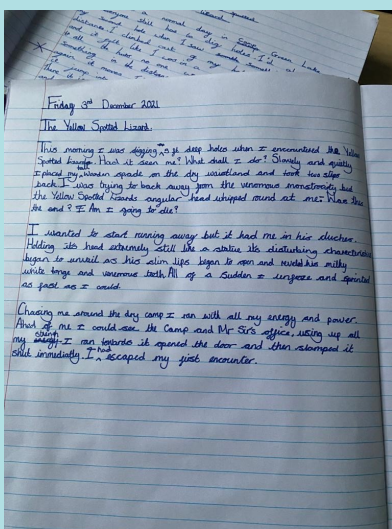 a normal day in Green Lake
still has to dig holes. I'd
when I saw
distance. I climbed out of my
to no one
Friday 3rd December 2021
The Yellow Spotted Lizard.
This morning I was digging 5 ft deep holes when I encountered the Yellow
Spotted Lizard. Had it seen me? What shall I do? Slowly and quietly
I placed my tall wooden spade on the dry waistland and took two steps
back. I was trying to back away from the venomous monstrosity but
the Yellow Spotted Lizards angular head whipped round at me. Was this
the end? Am I going to die?
I wanted to start running away but it had me in his cluches.
Holding its head extremely still like a statue its disturbing characteristics
began to unveil as his slim lips began to open and reveld his milky
white tonge and venomous teeth. All of a sudden I unfroze and sprinted
as fast as I could.
Chasing me around the dry camp I ran with all my energy and power.
Ahead of me I could see the Camp and Mr Sir's office, using up all
my strength I ran towards it opened the door and then slamped it
shut immediatly. I had escaped my first encounter.